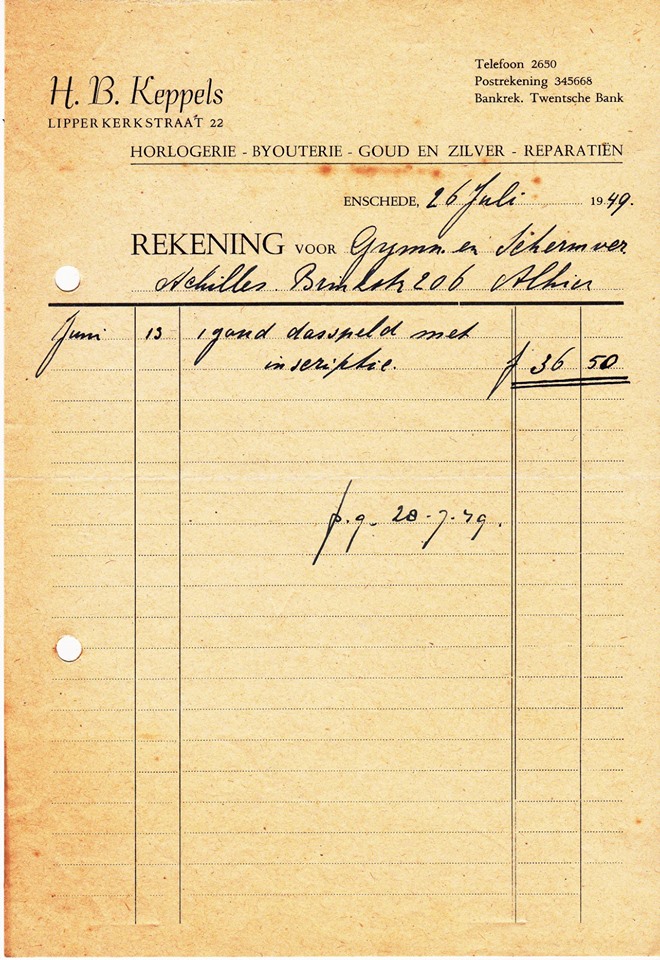 H. B. Keppels
LIPPERKERKSTRAAT 22
Telefoon 2650
Postrekening 345668
Bankrek. Twentsche Bank
HORLOGERIE - BYOUTERIE - GOUD EN ZILVER - REPARATIËN
ENSCHEDE, 26 Juli 1949.
REKENING VOOR Gymn. en Schermver
Achilles. Brinkstr 206 Alhier
Juni 13 1 goud dasspeld met
inscriptie. f 36 50
p.g. 28-7-49.